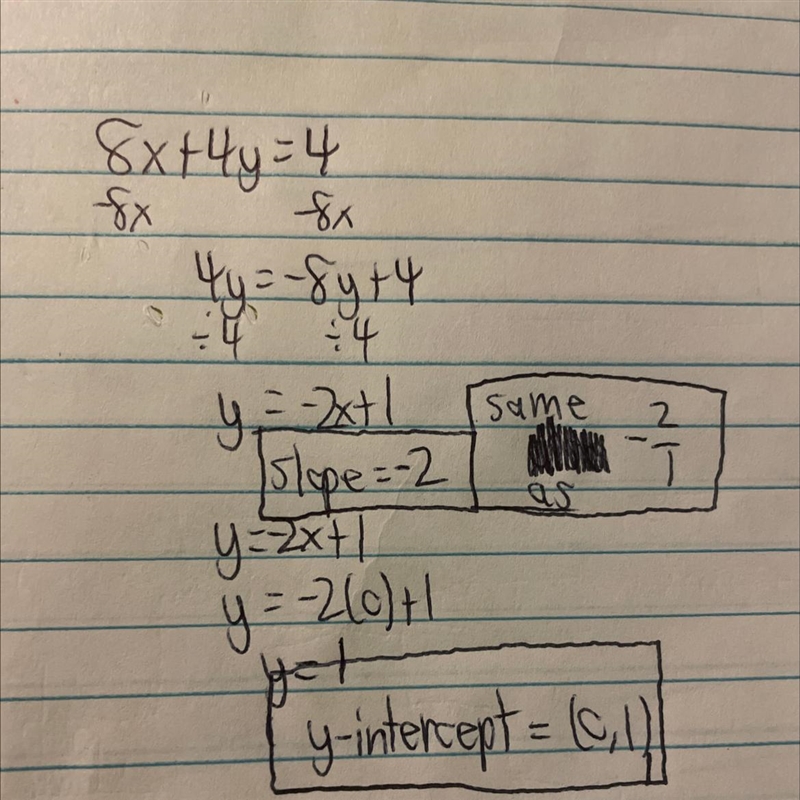 8x+4y=4
-8x -8x
4y=-8y+4
÷4 ÷4
y = -2x+1
slope=-2
same
as
-2/1
y=-2x+1
y = -2(0)+1
y=1
y-intercept = (0,1)